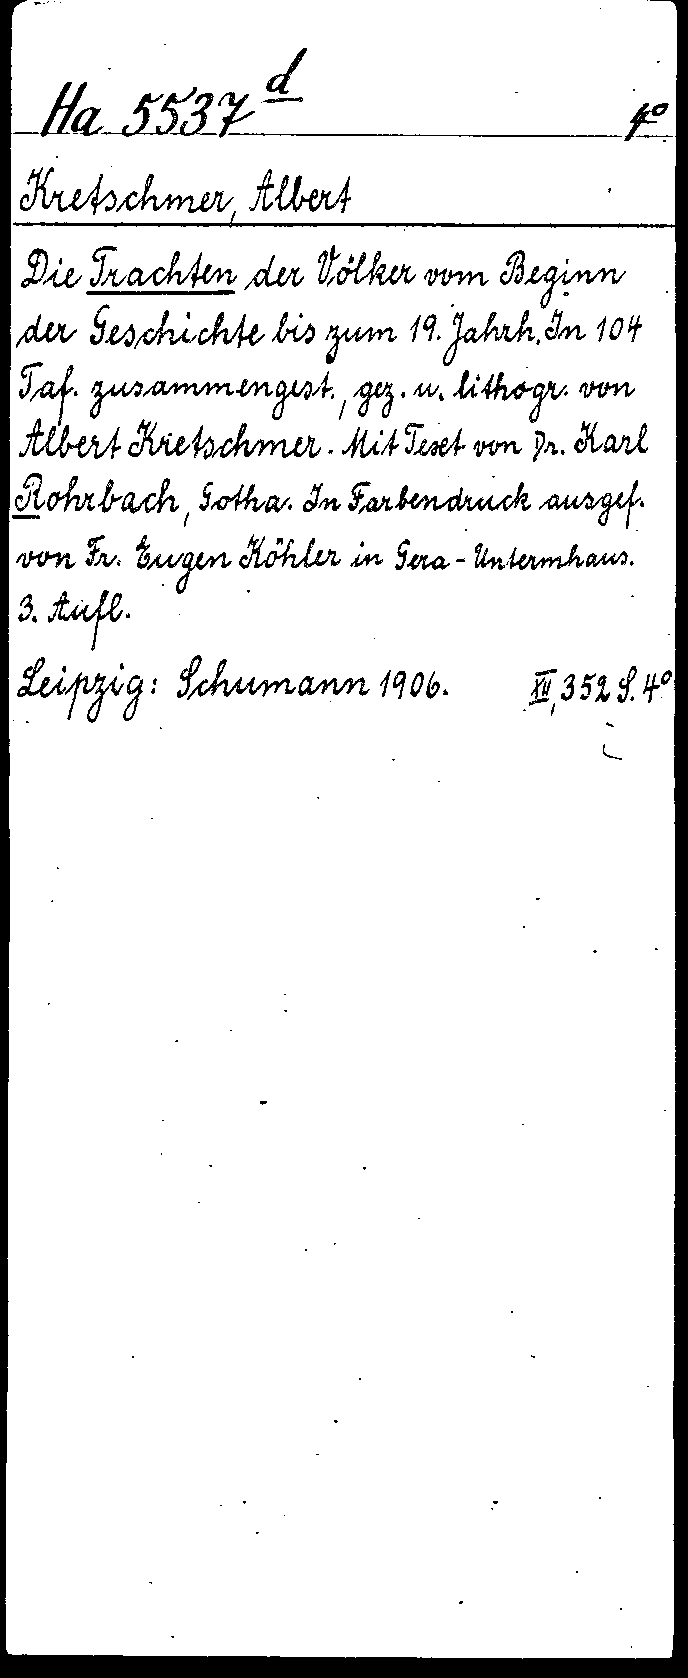 Ha 5537 d 4°
Kretschmer, Albert
Die Trachten der Völker vom Beginn
der Geschichte bis zum 19. Jahrh. In 104
Taf. zusammengest., gez. u. lithogr. von
Albert Kretschmer. Mit Text von Dr. Karl
Rohrbach, Gotha. In Farbendruck ausgef.
von Fr. Eugen Köhler in Gera-Untermhaus.
3. Aufl.
Leipzig: Schumann 1906. XII, 352 S. 4°